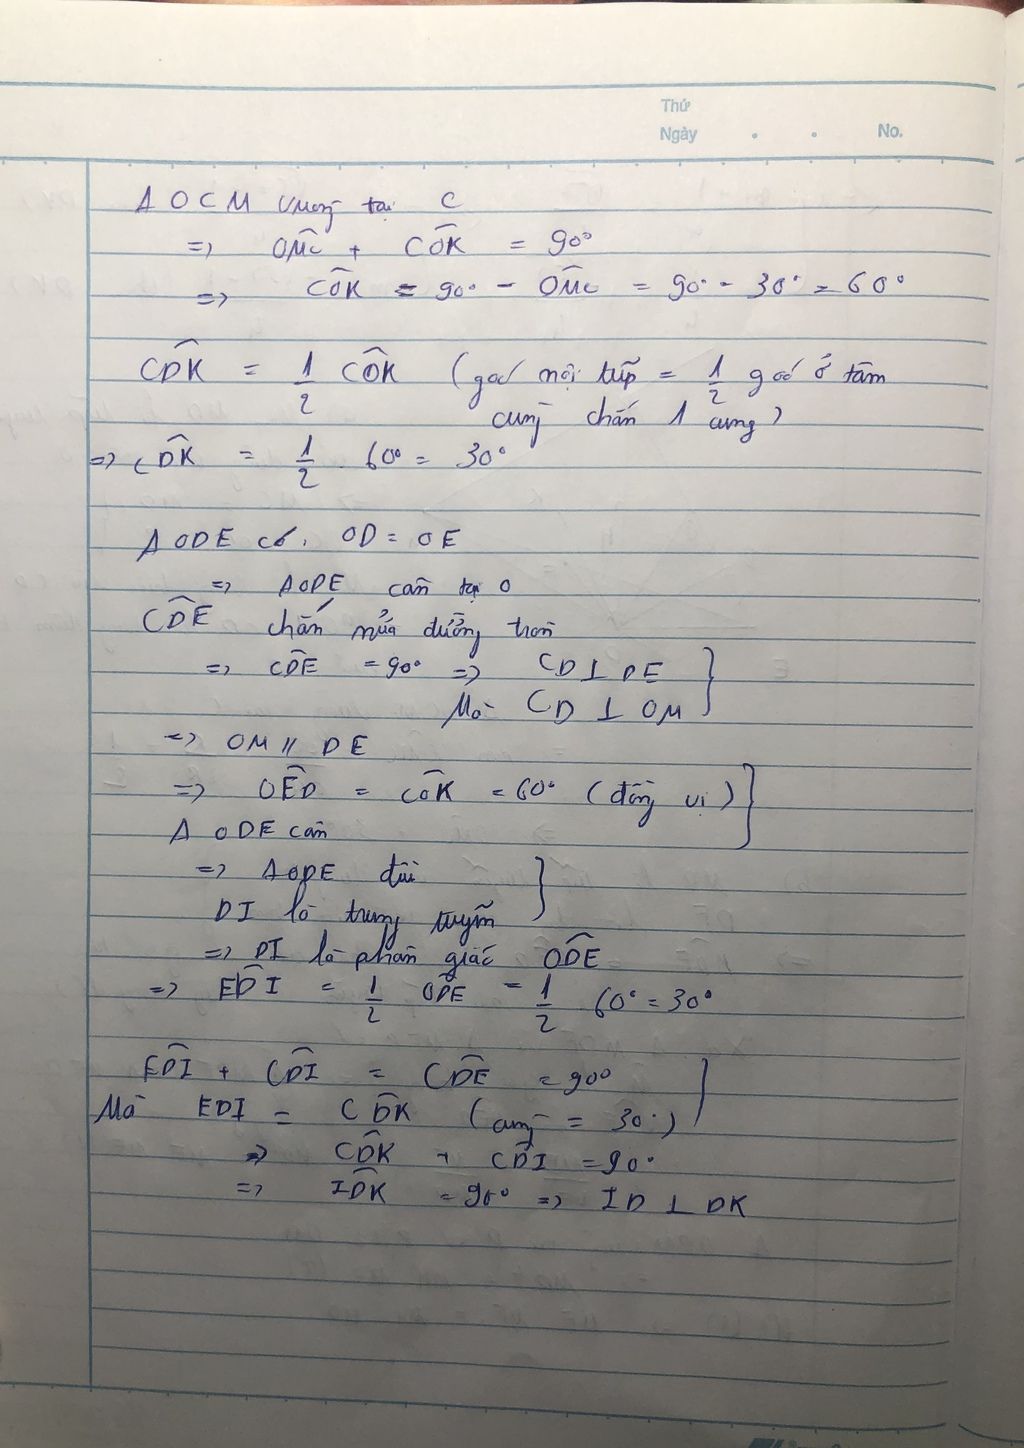 Thứ
Ngày . . No.
Δ OCM vuông tại C
=> OM̂C + CÔK = 90°
=> CÔK = 90° - OM̂C = 90° - 30° = 60°
CD̂K = 1/2 CÔK (góc nội tiếp = 1/2 góc ở tâm
cùng chắn 1 cung)
=> CD̂K = 1/2 . 60° = 30°
Δ ODE có: OD = OE
=> Δ ODE cân tại O
CD̂E chắn nửa đường tròn
=> CD̂E = 90° => CD ⊥ DE
Mà CD ⊥ OM
=> OM // DE
=> OÊD = CÔK = 60° (đồng vị)
Δ ODE cân
=> Δ ODE đều
DI là trung tuyến
=> DI là phân giác OD̂E
=> ED̂I = 1/2 OD̂E = 1/2 60° = 30°
ED̂I + CD̂I = CD̂E = 90°
Mà EDI = CD̂K (cùng = 30°)
=> CD̂K + CD̂I = 90°
=> ID̂K = 90° => ID ⊥ DK